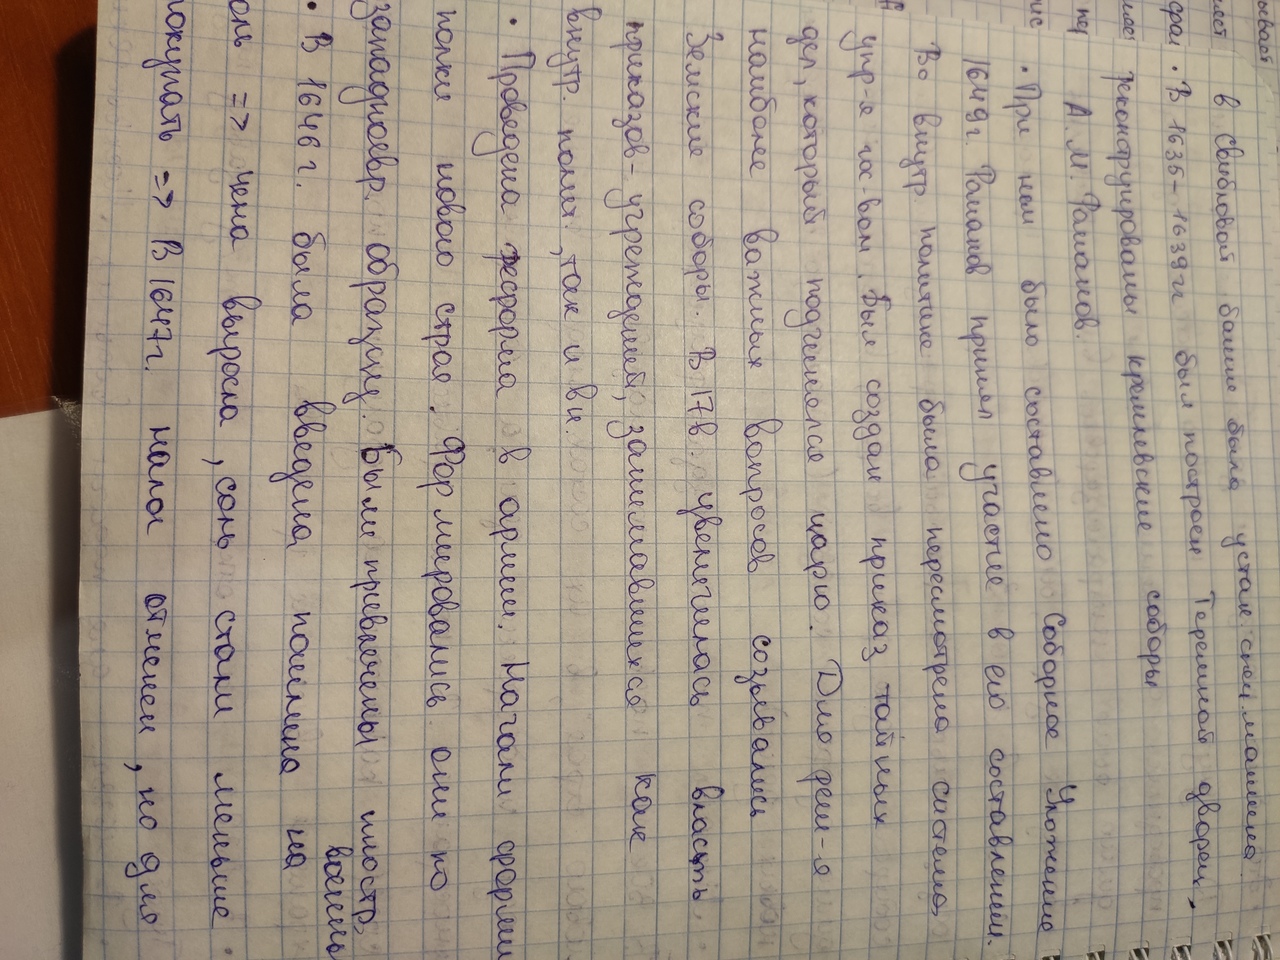 в Свибловой башне была устан. спец. машина.
• В 1635-1639 гг был построен Теремной дворец,
реконструированы кремлевские соборы
А. М. Романов.
• При нем было составлено Соборное Уложение
1649г. Романов принял участие в его составлении.
Во внутр. политике была пересмотрена система
упр-я гос-вом. Был создан приказ тайных
дел, который подчинялся царю. Для реш-я
наиболее важных вопросов созывались
Земские соборы. В 17в. увеличилась власть
приказов - учреждений, занимавшихся как
внутр. полит., так и вн.
• Проведена реформа в армии. Начали форми
полки нового строя. Формировались они по
западноевр. образцу. Были привлечены иностр.
военны
• В 1646 г. была введена пошлина на
оль => цена выросла, соль стали меньше
покупать => В 1647г. налог отменен, но для